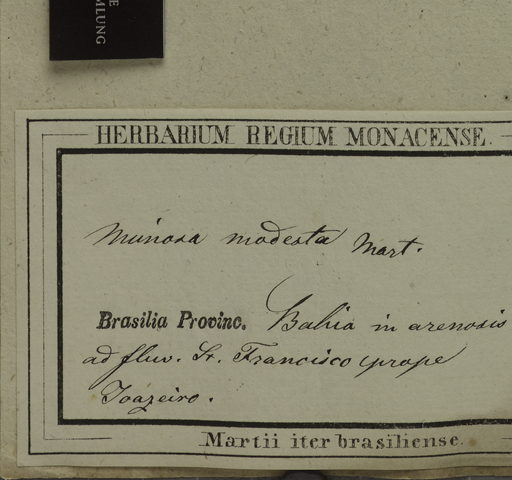 E
MLUNG
HERBARIUM REGIUM MONACENSE.
Mimosa modesta Mart.
Brasilia Provinc. Bahia in arenosis
ad fluv. Sr. Francisco prope
Joazeiro.
Martii iter brasiliense.